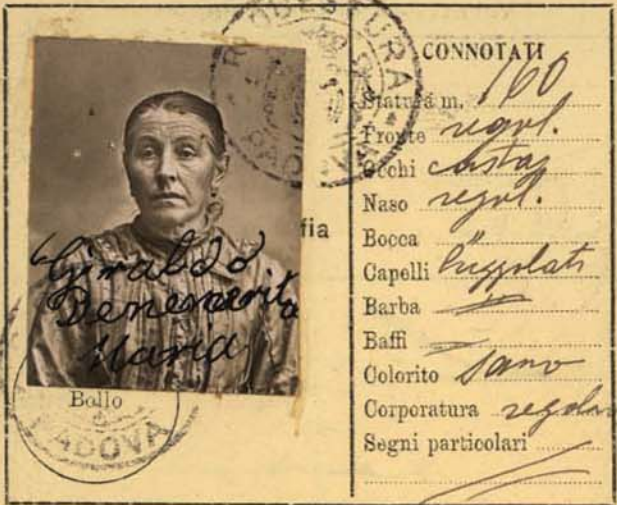 QUESTURA
CONNOTATI
Statura m. 160
Fronte regol.
Occhi castag
Naso regol.
fia
Bocca "
Capelli
Barba
Baffi
Colorito sano
Corporatura regolare
Segni particolari
Giraldo
Benemerita
Maria
Bollo
PADOVA